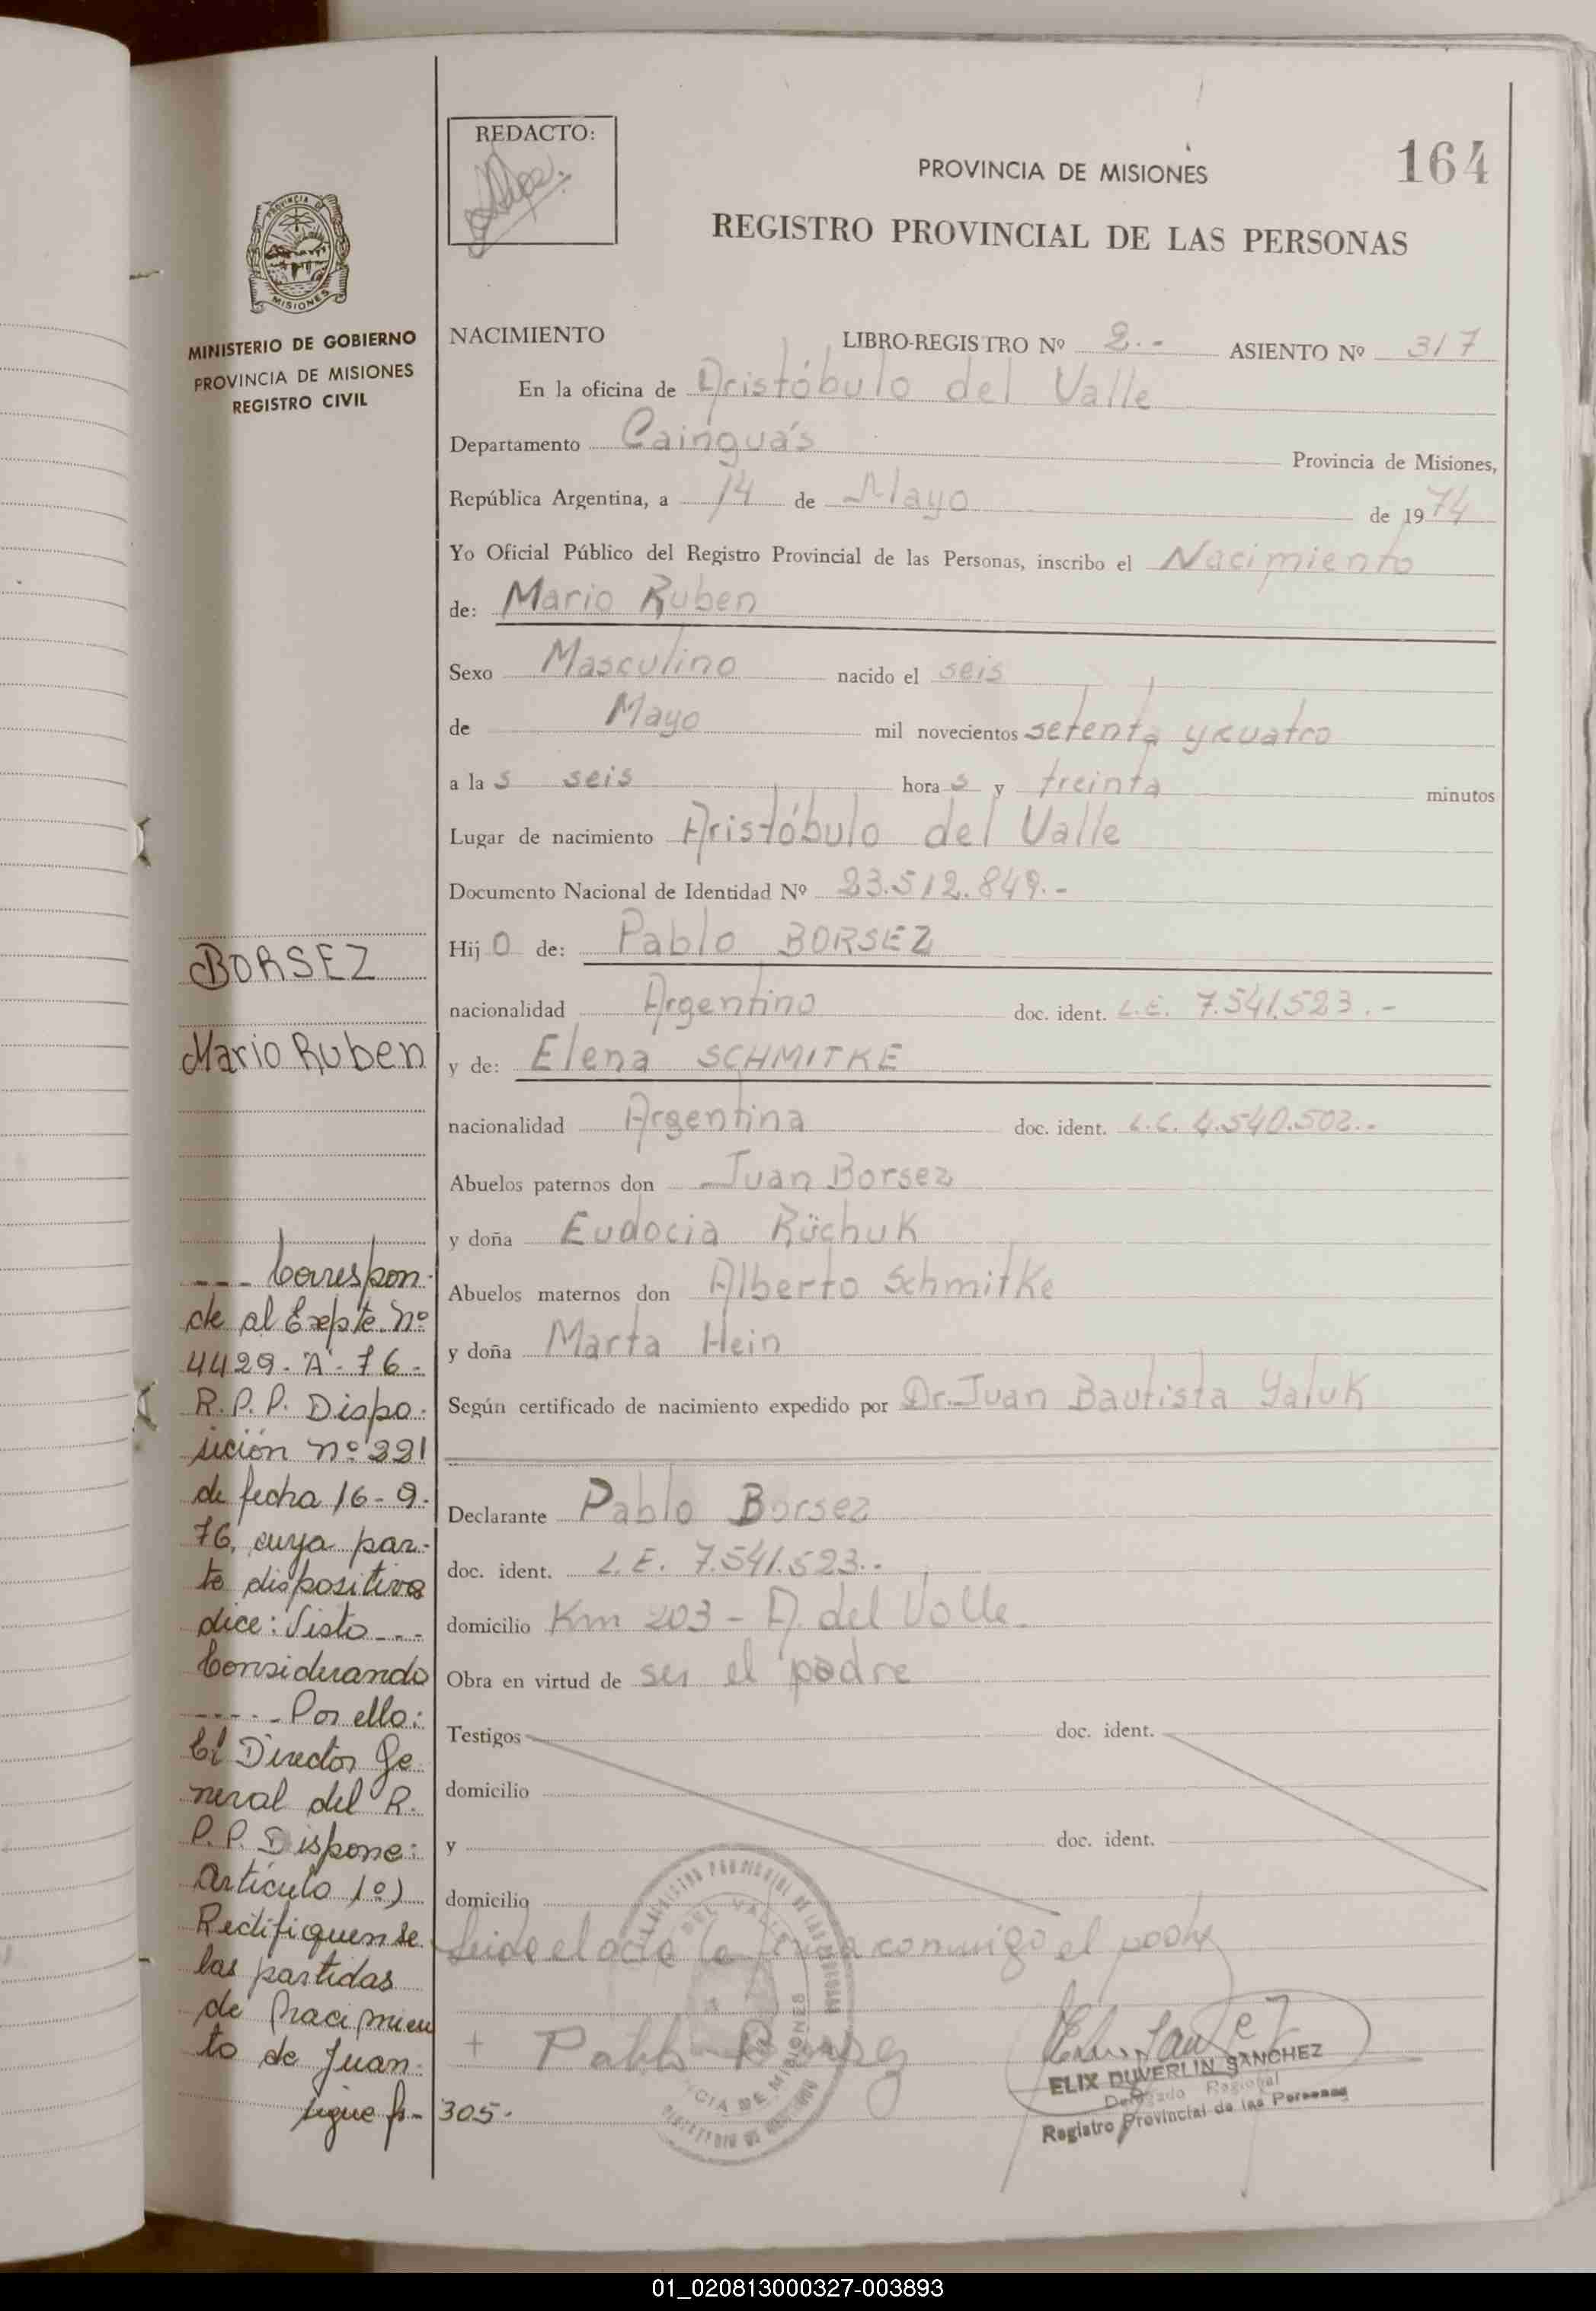 REDACTO:
164
PROVINCIA DE MISIONES
REGISTRO PROVINCIAL DE LAS PERSONAS
PROVINCIA DE
MISIONES
MINISTERIO DE GOBIERNO
PROVINCIA DE MISIONES
REGISTRO CIVIL
NACIMIENTO LIBRO-REGISTRO Nº 2.- ASIENTO Nº 317
En la oficina de Aristóbulo del Valle
Departamento Cainguás Provincia de Misiones,
República Argentina, a 14 de Mayo de 1974
Yo Oficial Público del Registro Provincial de las Personas, inscribo el Nacimiento
de: Mario Ruben
Sexo Masculino nacido el seis
de Mayo mil novecientos setenta y cuatro
a las seis horas y treinta minutos
Lugar de nacimiento Aristóbulo del Valle
Documento Nacional de Identidad Nº 23.512.849.-
Hijo de: Pablo BORSEZ
nacionalidad Argentino doc. ident. L.E. 7.541.523.-
y de: Elena SCHMITKE
nacionalidad Argentina doc. ident. L.C. 4.540.502.-
Abuelos paternos don Juan Borsez
y doña Eudocia Rüchuk
Abuelos maternos don Alberto Schmitke
y doña Marta Hein
Según certificado de nacimiento expedido por Dr. Juan Bautista Yaluk
Declarante Pablo Borsez
doc. ident. L.E. 7.541.523.-
domicilio Km 203 - A. del Valle
Obra en virtud de ser el padre
Testigos doc. ident.
domicilio
y doc. ident.
domicilio
Leida el acta la firma conmigo el padre
+ Pablo Borsez
ELIX DUVERLIN SANCHEZ
Delegado Regional
Registro Provincial de las Personas
BORSEZ
Mario Ruben
--- Correspon-
de al Expte. nº
4429-"A"-76-
R.P.P. Dispo-
sición nº 221
de fecha 16-9-
76, cuya par-
te dispositiva
dice: Visto ---
Considerando
----- Por ello:
El Director Ge-
neral del R.
P.P. Dispone:
Artículo 1º)
Rectifiquense
las partidas
de nacimien
to de Juan
sigue fs- 305-
01_020813000327-003893